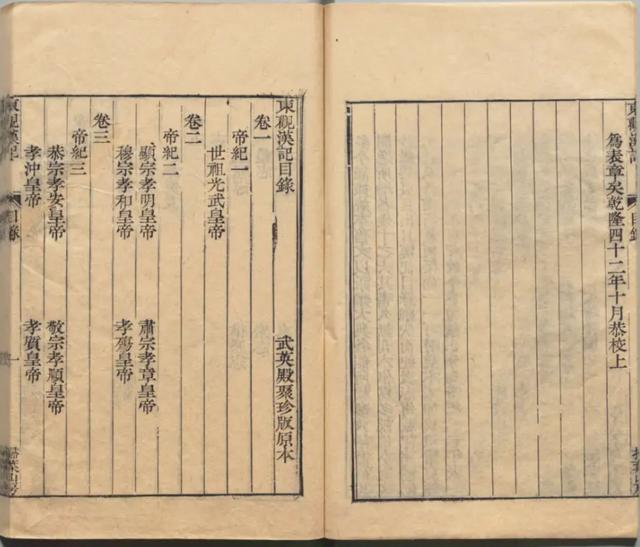 東觀漢記 目錄
爲表章矣乾隆四十二年十月恭校上
東觀漢記目錄 武英殿聚珍版原本
卷一
帝紀一
世祖光武皇帝
卷二
帝紀二
顯宗孝明皇帝 肅宗孝章皇帝
穆宗孝和皇帝 孝殤皇帝
卷三
帝紀三
恭宗孝安皇帝 敬宗孝順皇帝
孝沖皇帝 孝質皇帝
東觀漢記 目錄 一